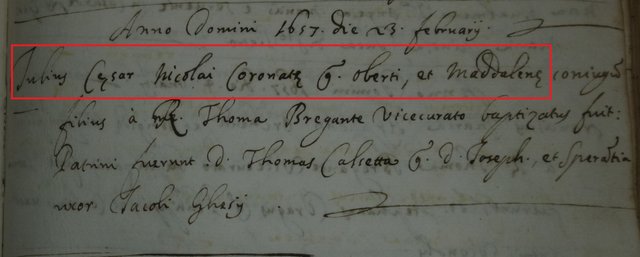 Anno Domini 1657. die 23. february.
Iulius Cęsar Nicolai Coronatę q. oberti, et Maddalenę coniugũ
filius à me Thoma Bregante Vicecurato baptizatus fuit:
Patrini fuerunt d. Thomas Calsetta q. d. Joseph. et Speran̄tia
uxor Iacobi Ghisij